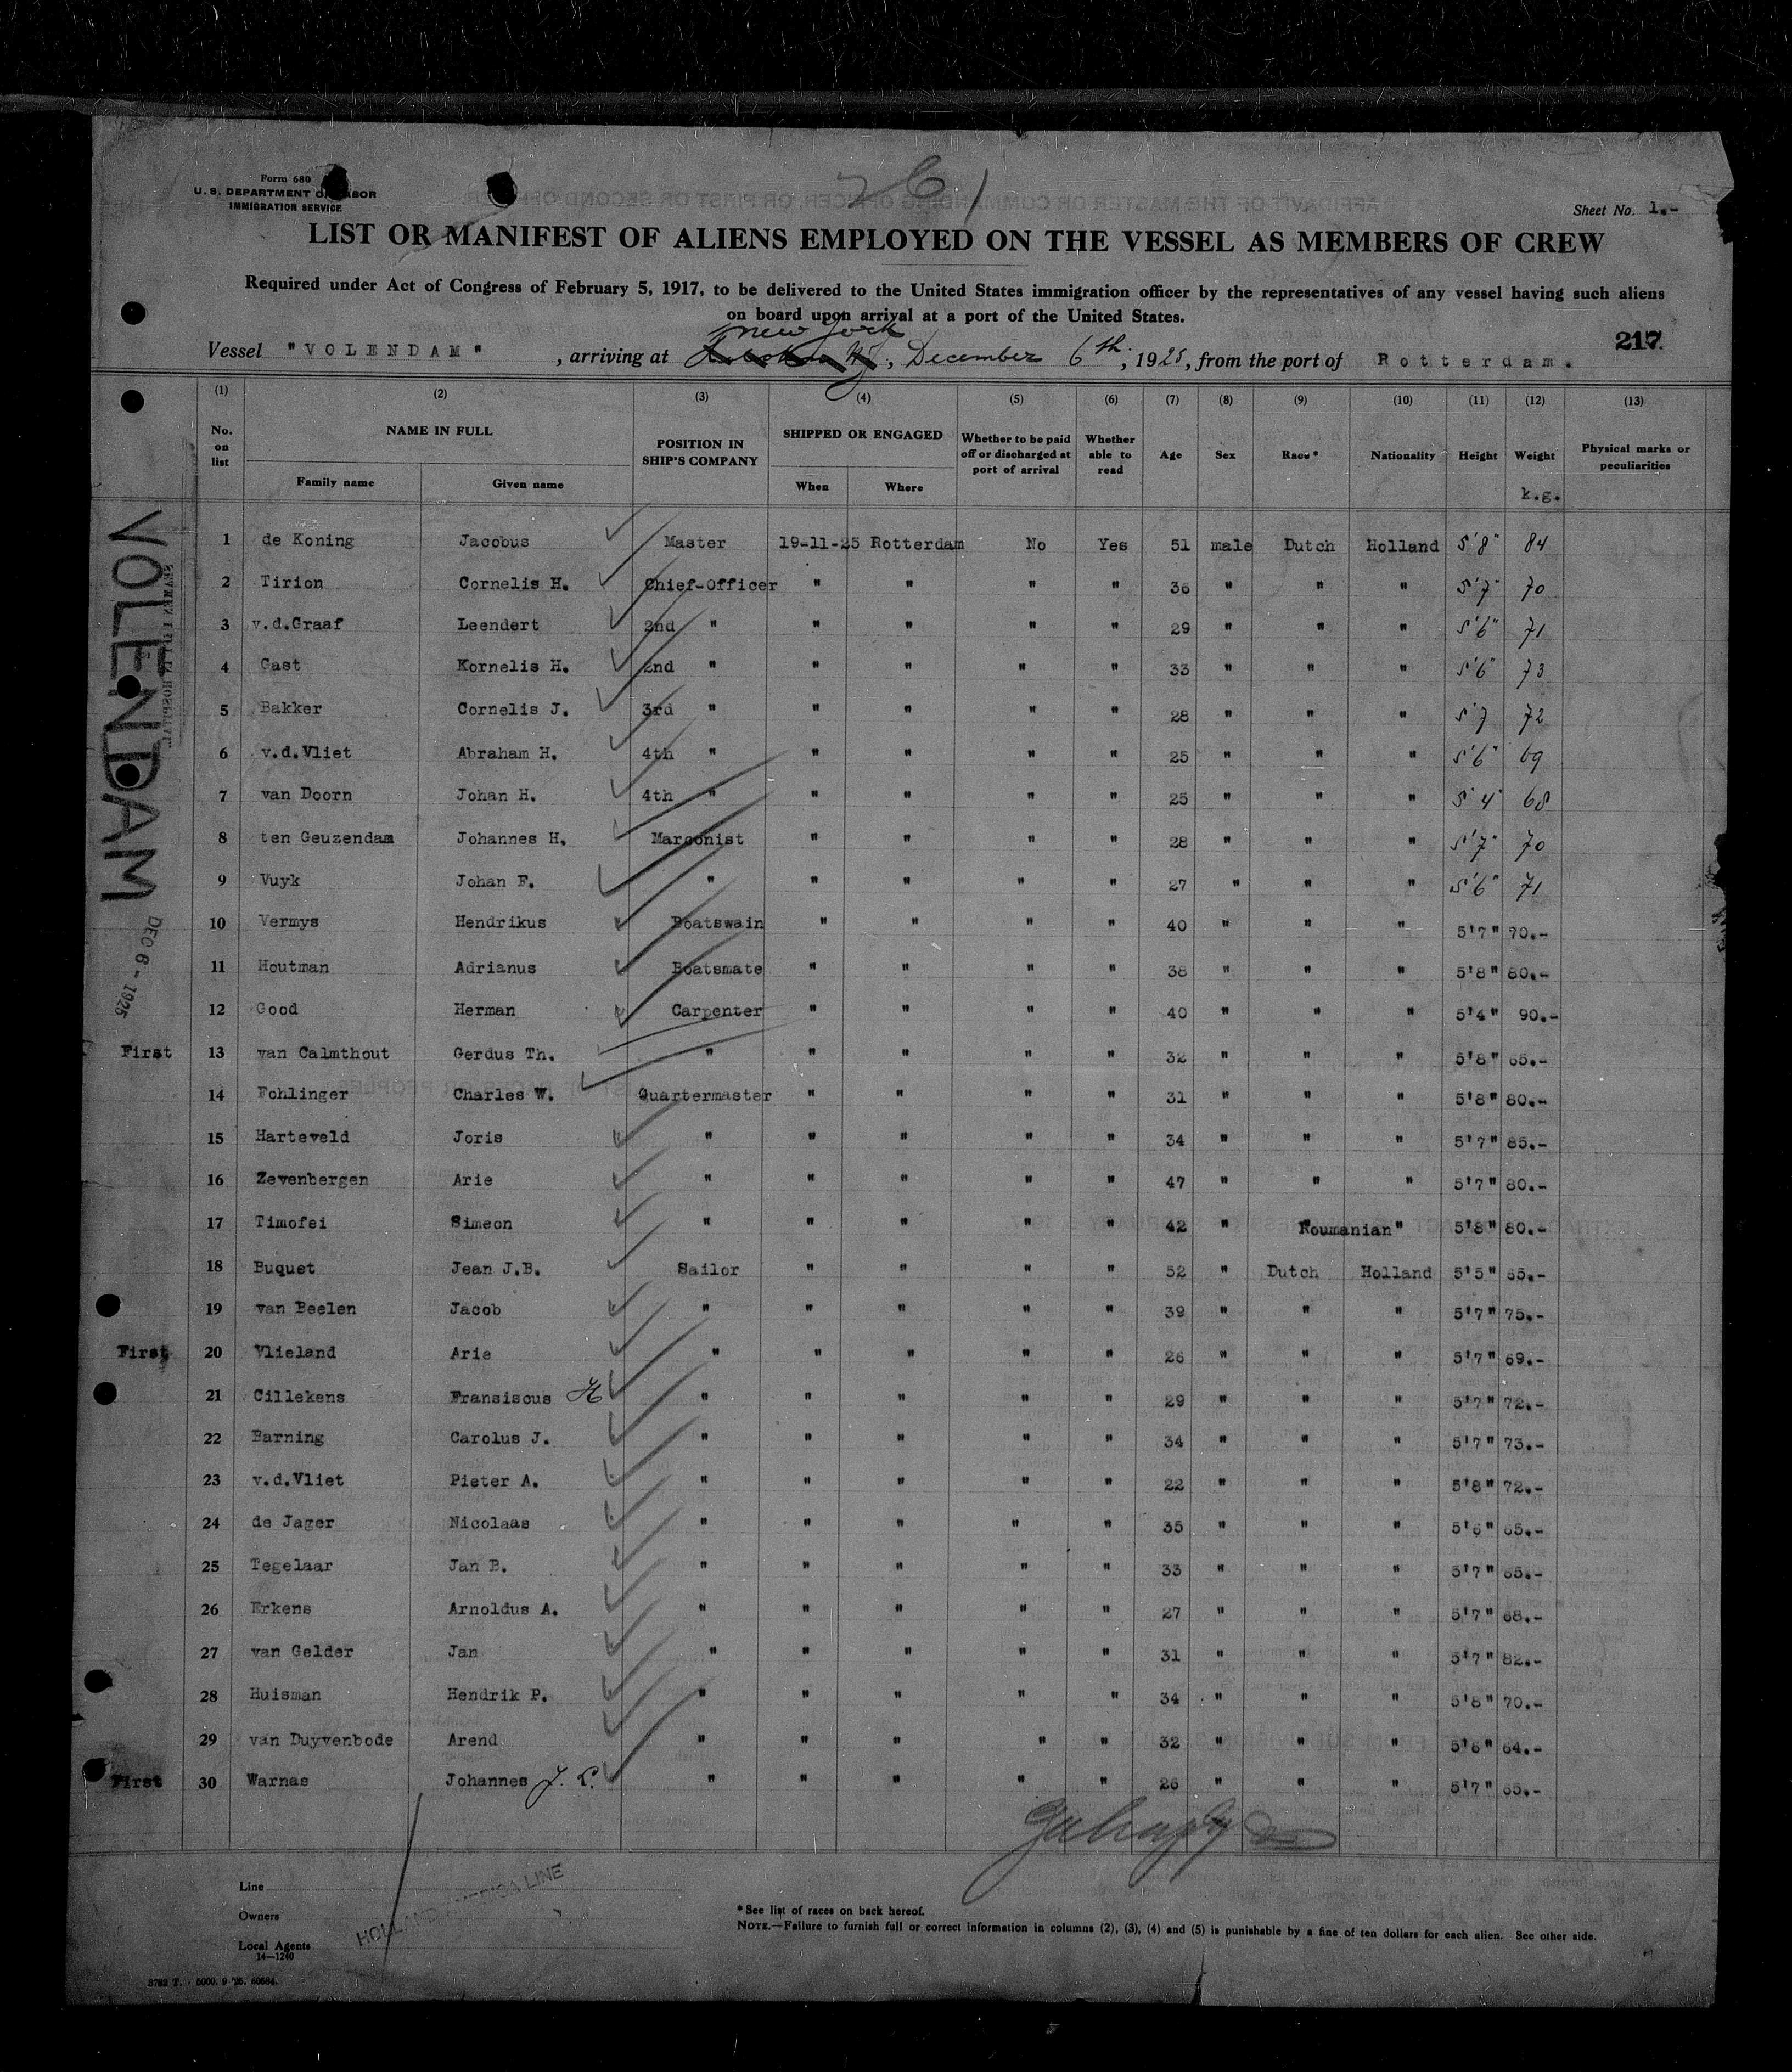 Form 680
U. S. DEPARTMENT OF LABOR
IMMIGRATION SERVICE
Sheet No. 1.-
LIST OR MANIFEST OF ALIENS EMPLOYED ON THE VESSEL AS MEMBERS OF CREW
Required under Act of Congress of February 5, 1917, to be delivered to the United States immigration officer by the representatives of any vessel having such aliens
on board upon arrival at a port of the United States.
217
New York
Vessel "VOLENDAM" , arriving at , December 6th, 1925, from the port of Rotterdam.
(1) (2) (3) (4) (5) (6) (7) (8) (9) (10) (11) (12) (13)
No. on list NAME IN FULL POSITION IN SHIP'S COMPANY SHIPPED OR ENGAGED Whether to be paid off or discharged at port of arrival Whether able to read Age Sex Race* Nationality Height Weight Physical marks or peculiarities
Family name Given name When Where k.g.
1 de Koning Jacobus Master 19-11-25 Rotterdam No Yes 51 male Dutch Holland 5'8" 84
2 Tirion Cornelis H. Chief-Officer " " " " 36 " " " 5'7" 70
3 v.d.Graaf Leendert 2nd " " " " " 29 " " " 5'6" 71
4 Gast Kornelis H. 2nd " " " " " 33 " " " 5'6" 73
5 Bakker Cornelis J. 3rd " " " " " 28 " " " 5'7 72
6 v.d.Vliet Abraham H. 4th " " " " " 25 " " " 5'6" 69
7 van Doorn Johan H. 4th " " " " " 25 " " " 5'4" 68
8 ten Geuzendam Johannes H. Marconist " " " " 28 " " " 5'7" 70
9 Vuyk Johan F. " " " " " 27 " " " 5'6" 71
10 Vermys Hendrikus Boatswain " " " " 40 " " " 5'7" 70.-
11 Houtman Adrianus Boatsmate " " " " 38 " " " 5'8" 80.-
12 Good Herman Carpenter " " " " 40 " " " 5'4" 90.-
First 13 van Calmthout Gerdus Th. " " " " " 32 " " " 5'8" 65.-
14 Fohlinger Charles W. Quartermaster " " " " 31 " " " 5'8" 80.-
15 Harteveld Joris " " " " " 34 " " " 5'7" 85.-
16 Zevenbergen Arie " " " " " 47 " " " 5'7" 80.-
17 Timofei Simeon " " " " " 42 " Roumanian " 5'8" 80.-
18 Buquet Jean J.B. Sailor " " " " 52 " Dutch Holland 5'5" 65.-
19 van Beelen Jacob " " " " " 39 " " " 5'7" 75.-
First 20 Vlieland Arie " " " " " 26 " " " 5'7" 69.-
21 Cillekens Fransiscus H " " " " " 29 " " " 5'7" 72.-
22 Barning Carolus J. " " " " " 34 " " " 5'7" 73.-
23 v.d.Vliet Pieter A. " " " " " 22 " " " 5'8" 72.-
24 de Jager Nicolaas " " " " " 35 " " " 5'6" 65.-
25 Tegelaar Jan B. " " " " " 33 " " " 5'7" 65.-
26 Erkens Arnoldus A. " " " " " 27 " " " 5'7" 68.-
27 van Gelder Jan " " " " " 31 " " " 5'7" 82.-
28 Huisman Hendrik P. " " " " " 34 " " " 5'8" 70.-
29 van Duyvenbode Arend " " " " " 32 " " " 5'6" 64.-
First 30 Warnas Johannes J. P. " " " " " 26 " " " 5'7" 65.-
VOLENDAM
DEC 6 - 1925
Line
Owners
Local Agents
14—1240
HOLLAND AMERICA LINE
*See list of races on back hereof.
NOTE.—Failure to furnish full or correct information in columns (2), (3), (4) and (5) is punishable by a fine of ten dollars for each alien. See other side.
3782 T. - 5000. 9 '25. 60584.